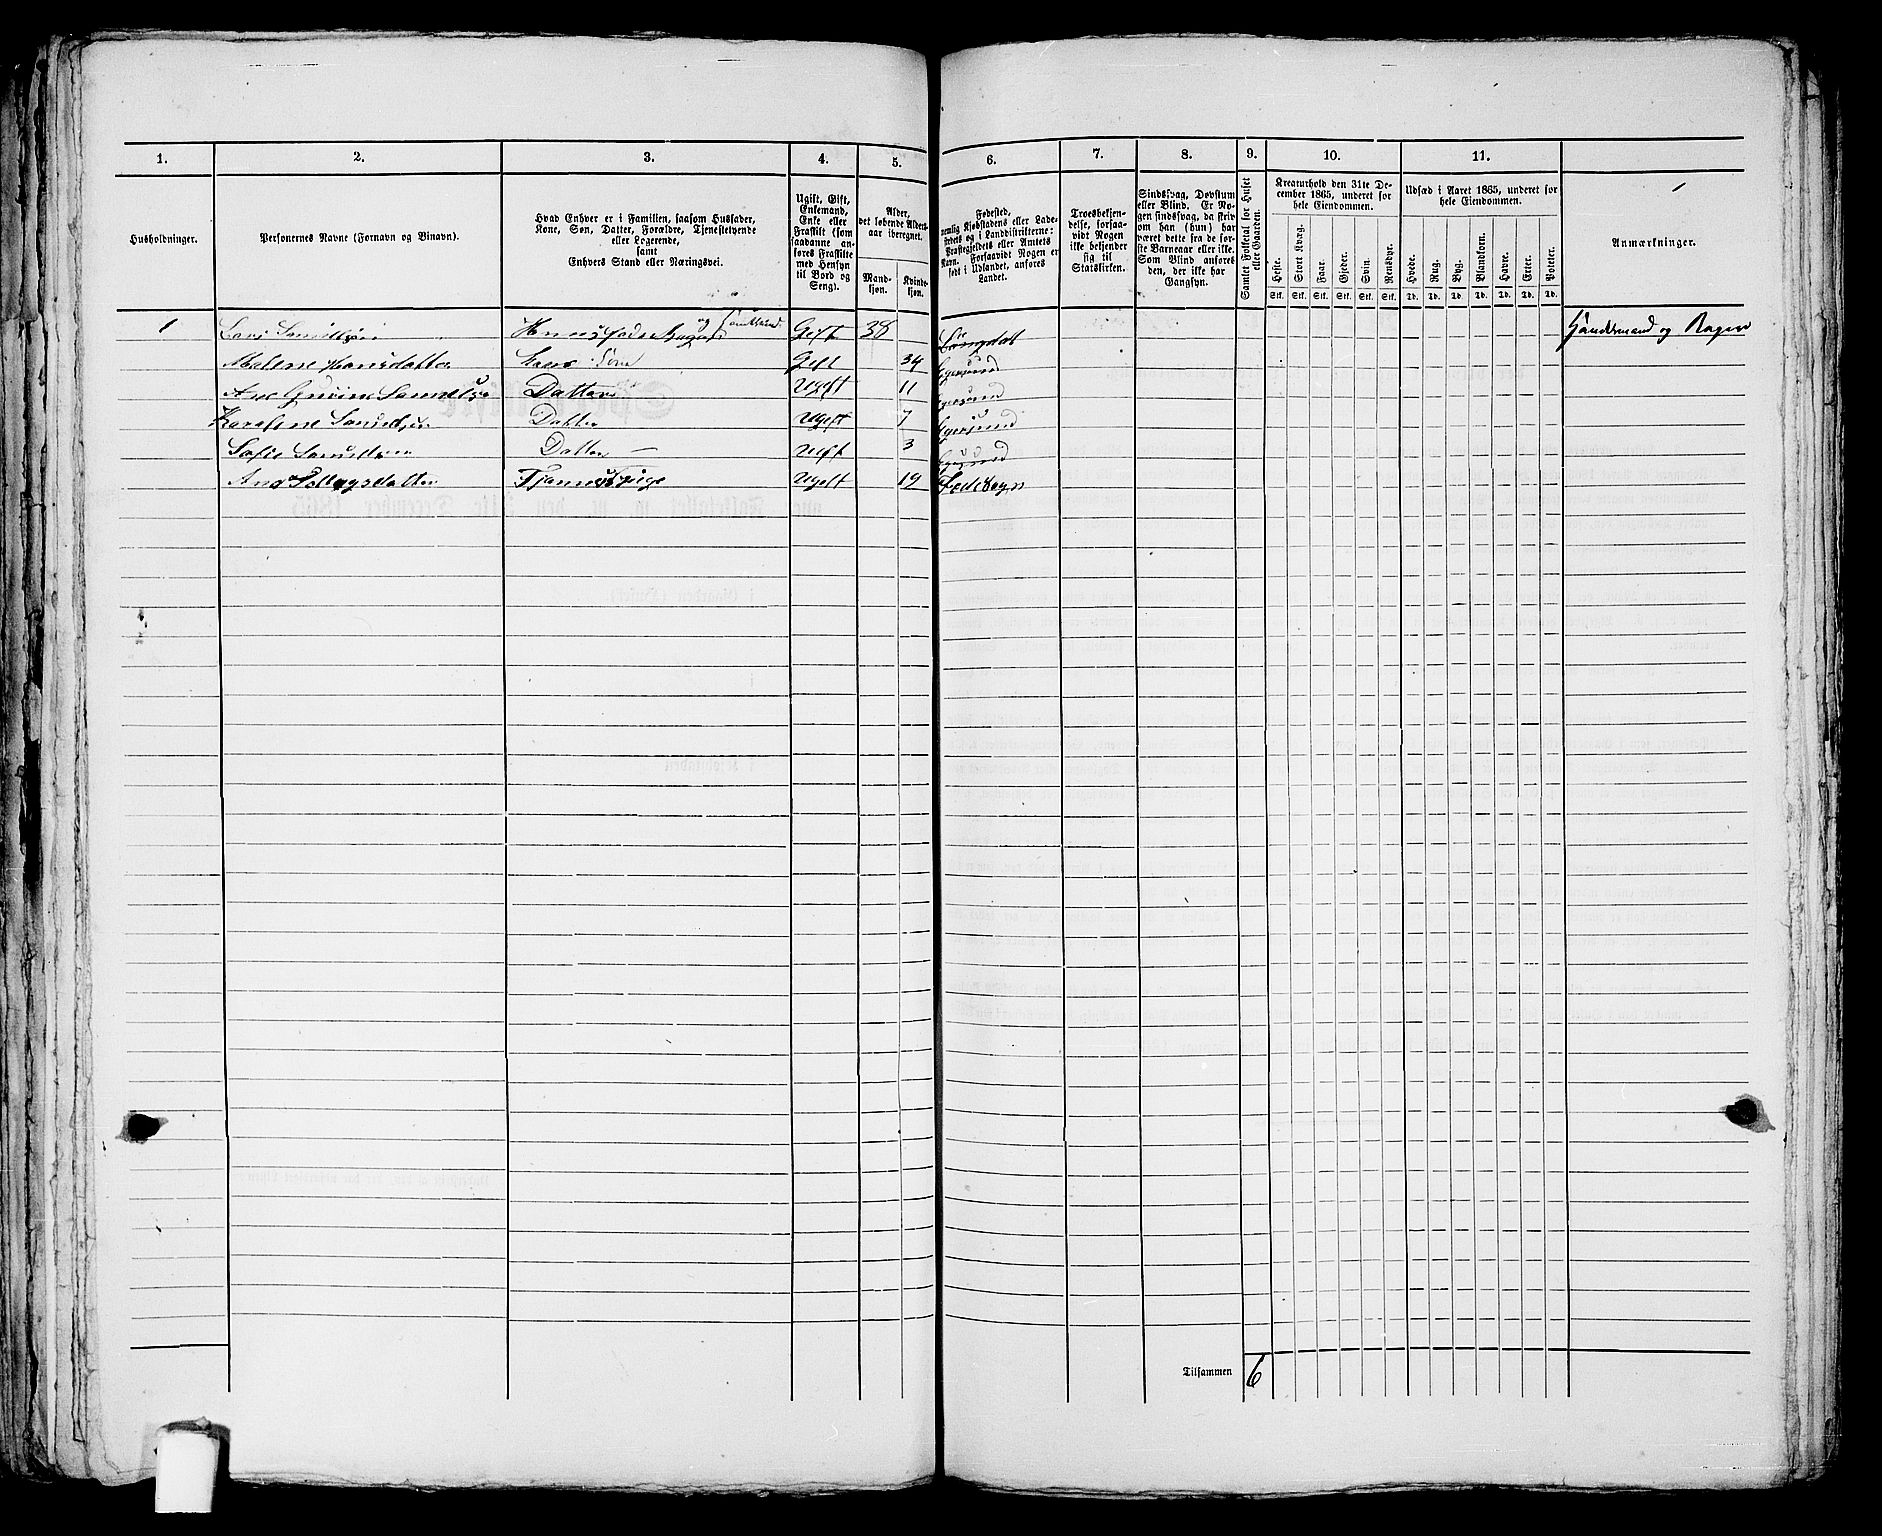 1.
2.
3.
4.
5.
6.
7.
8.
9.
10.
11.
Husholdninger.
Personernes Navne (Fornavn og Binavn).
Hvad Enhver er i Familien, saasom Husfader,
Kone, Søn, Datter, Forældre, Tjenestetyende
eller Logerende,
samt
Enhvers Stand eller Næringsvei.
Ugift, Gift,
Enkemand,
Enke eller
Fraskilt (som
saadanne an-
føres Fraskilte
med Hensyn
til Bord og
Seng).
Alder,
det løbende Alders-
aar iberegnet.
Mand-
kjøn.
Kvinde-
kjøn.
Fødested,
nemlig Kjøbstadens eller Lade-
stedets og i Landdistrikterne:
Præstegjeldets eller Amtets
Navn. Forsaavidt Nogen er
født i Udlandet, anføres
Landet.
Troesbekjen-
delse, forsaa-
vidt Nogen
ikke bekjender
sig til
Statskirken.
Sindssvag, Døvstum
eller Blind. Er No-
gen sindssvag, da skriv
om han (hun) har
været dette fra de før-
ste Barneaar eller ikke.
Som Blind anføres
den, der ikke har
Gangsyn.
Samlet Folketal for Huset
eller Gaarden.
Kreaturhold den 31te De-
cember 1865, underet for
hele Eiendommen.
Heste.
Stort Kvæg.
Faar.
Gjeder.
Svin.
Rensdyr.
Stk. Stk. Stk. Stk. Stk. Stk.
Udsæd i Aaret 1865, underet for
hele Eiendommen.
Hvede.
Rug.
Byg.
Blandkorn.
Havre.
Erter.
Poteter.
Td. Td. Td. Td. Td. Td. Td.
Anmærkninger.
1 Gift 38
Malene Hansdatter Gift 34 Egersund
Ane Samuelse Datter Ugift 11 Egersund
Datter Ugift 7 Egersund
Sofie Datter Ugift 3 Egersund
Ana Ugift 19
og
Tilsammen 6